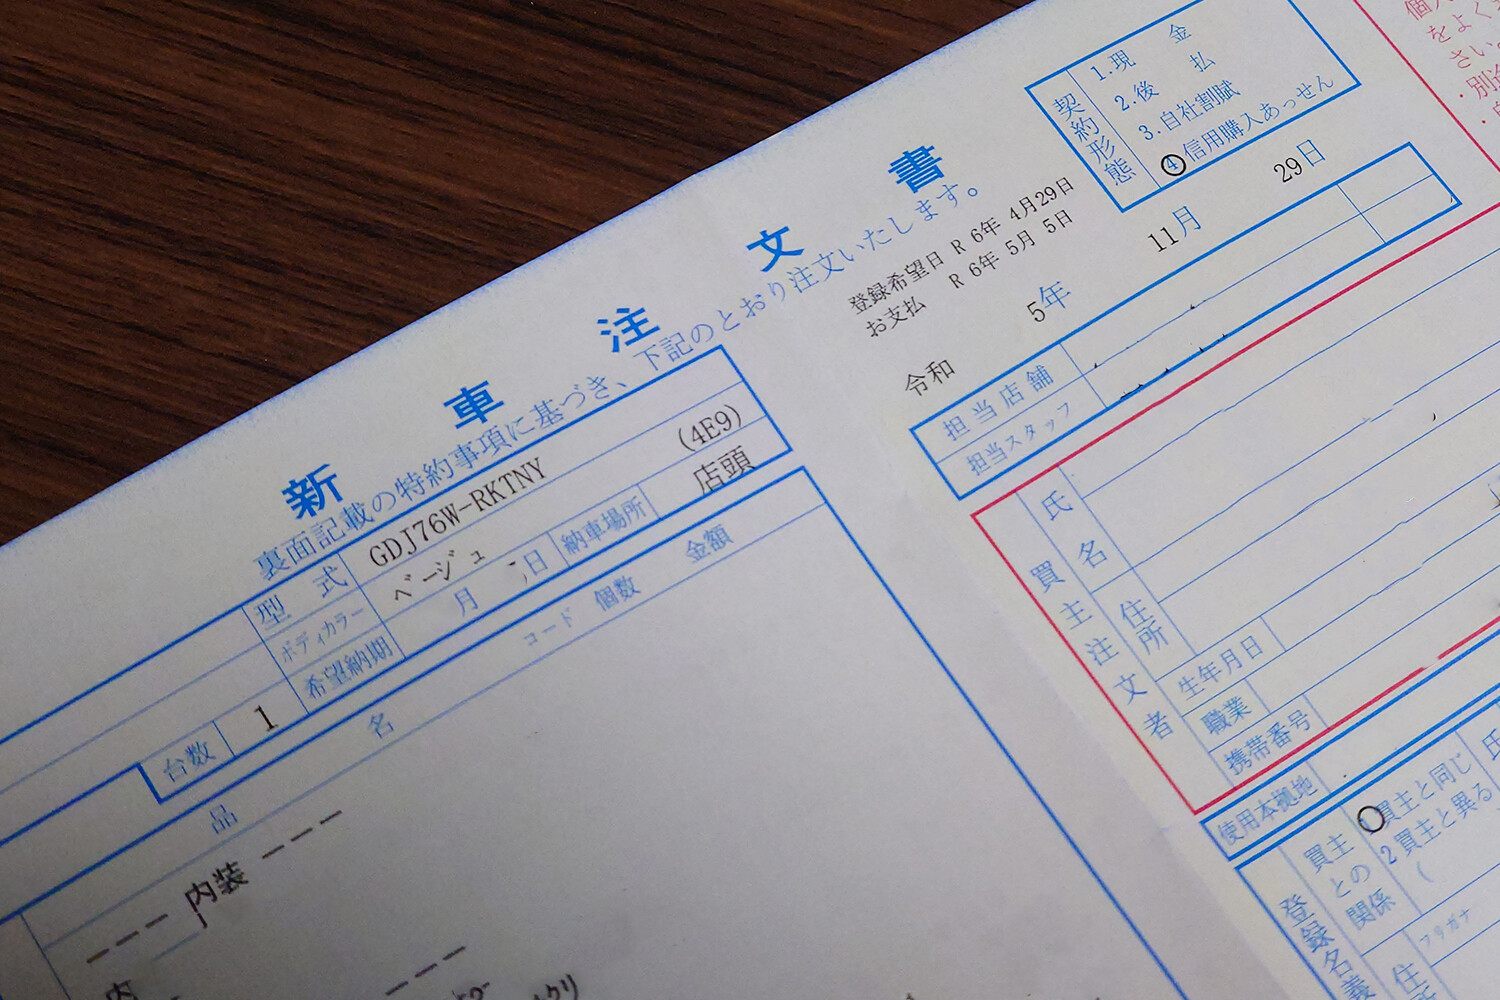 新車注文書
裏面記載の特約事項に基づき、下記のとおり注文いたします。
登録希望日 R 6年 4月29日
お支払 R 6年 5月 5日
令和 5年 11月 29日
契約形態
1.現金
2.後払
3.自社割賦
4 信用購入あっせん
担当店舗
担当スタッフ
型式 GDJ76W-RKTNY
ボディカラー ベージュ (4E9)
希望納期 月 日 納車場所 店頭
台数 1
品名 コード 個数 金額
---- 内装 ----
内
買主注文者
氏名
住所
生年月日
職業
携帯番号
使用本拠地
登録名義
買主との関係
買主と同じ
2 買主と異る
(
フリガナ
氏
住
個人
をよく
さい
・別途